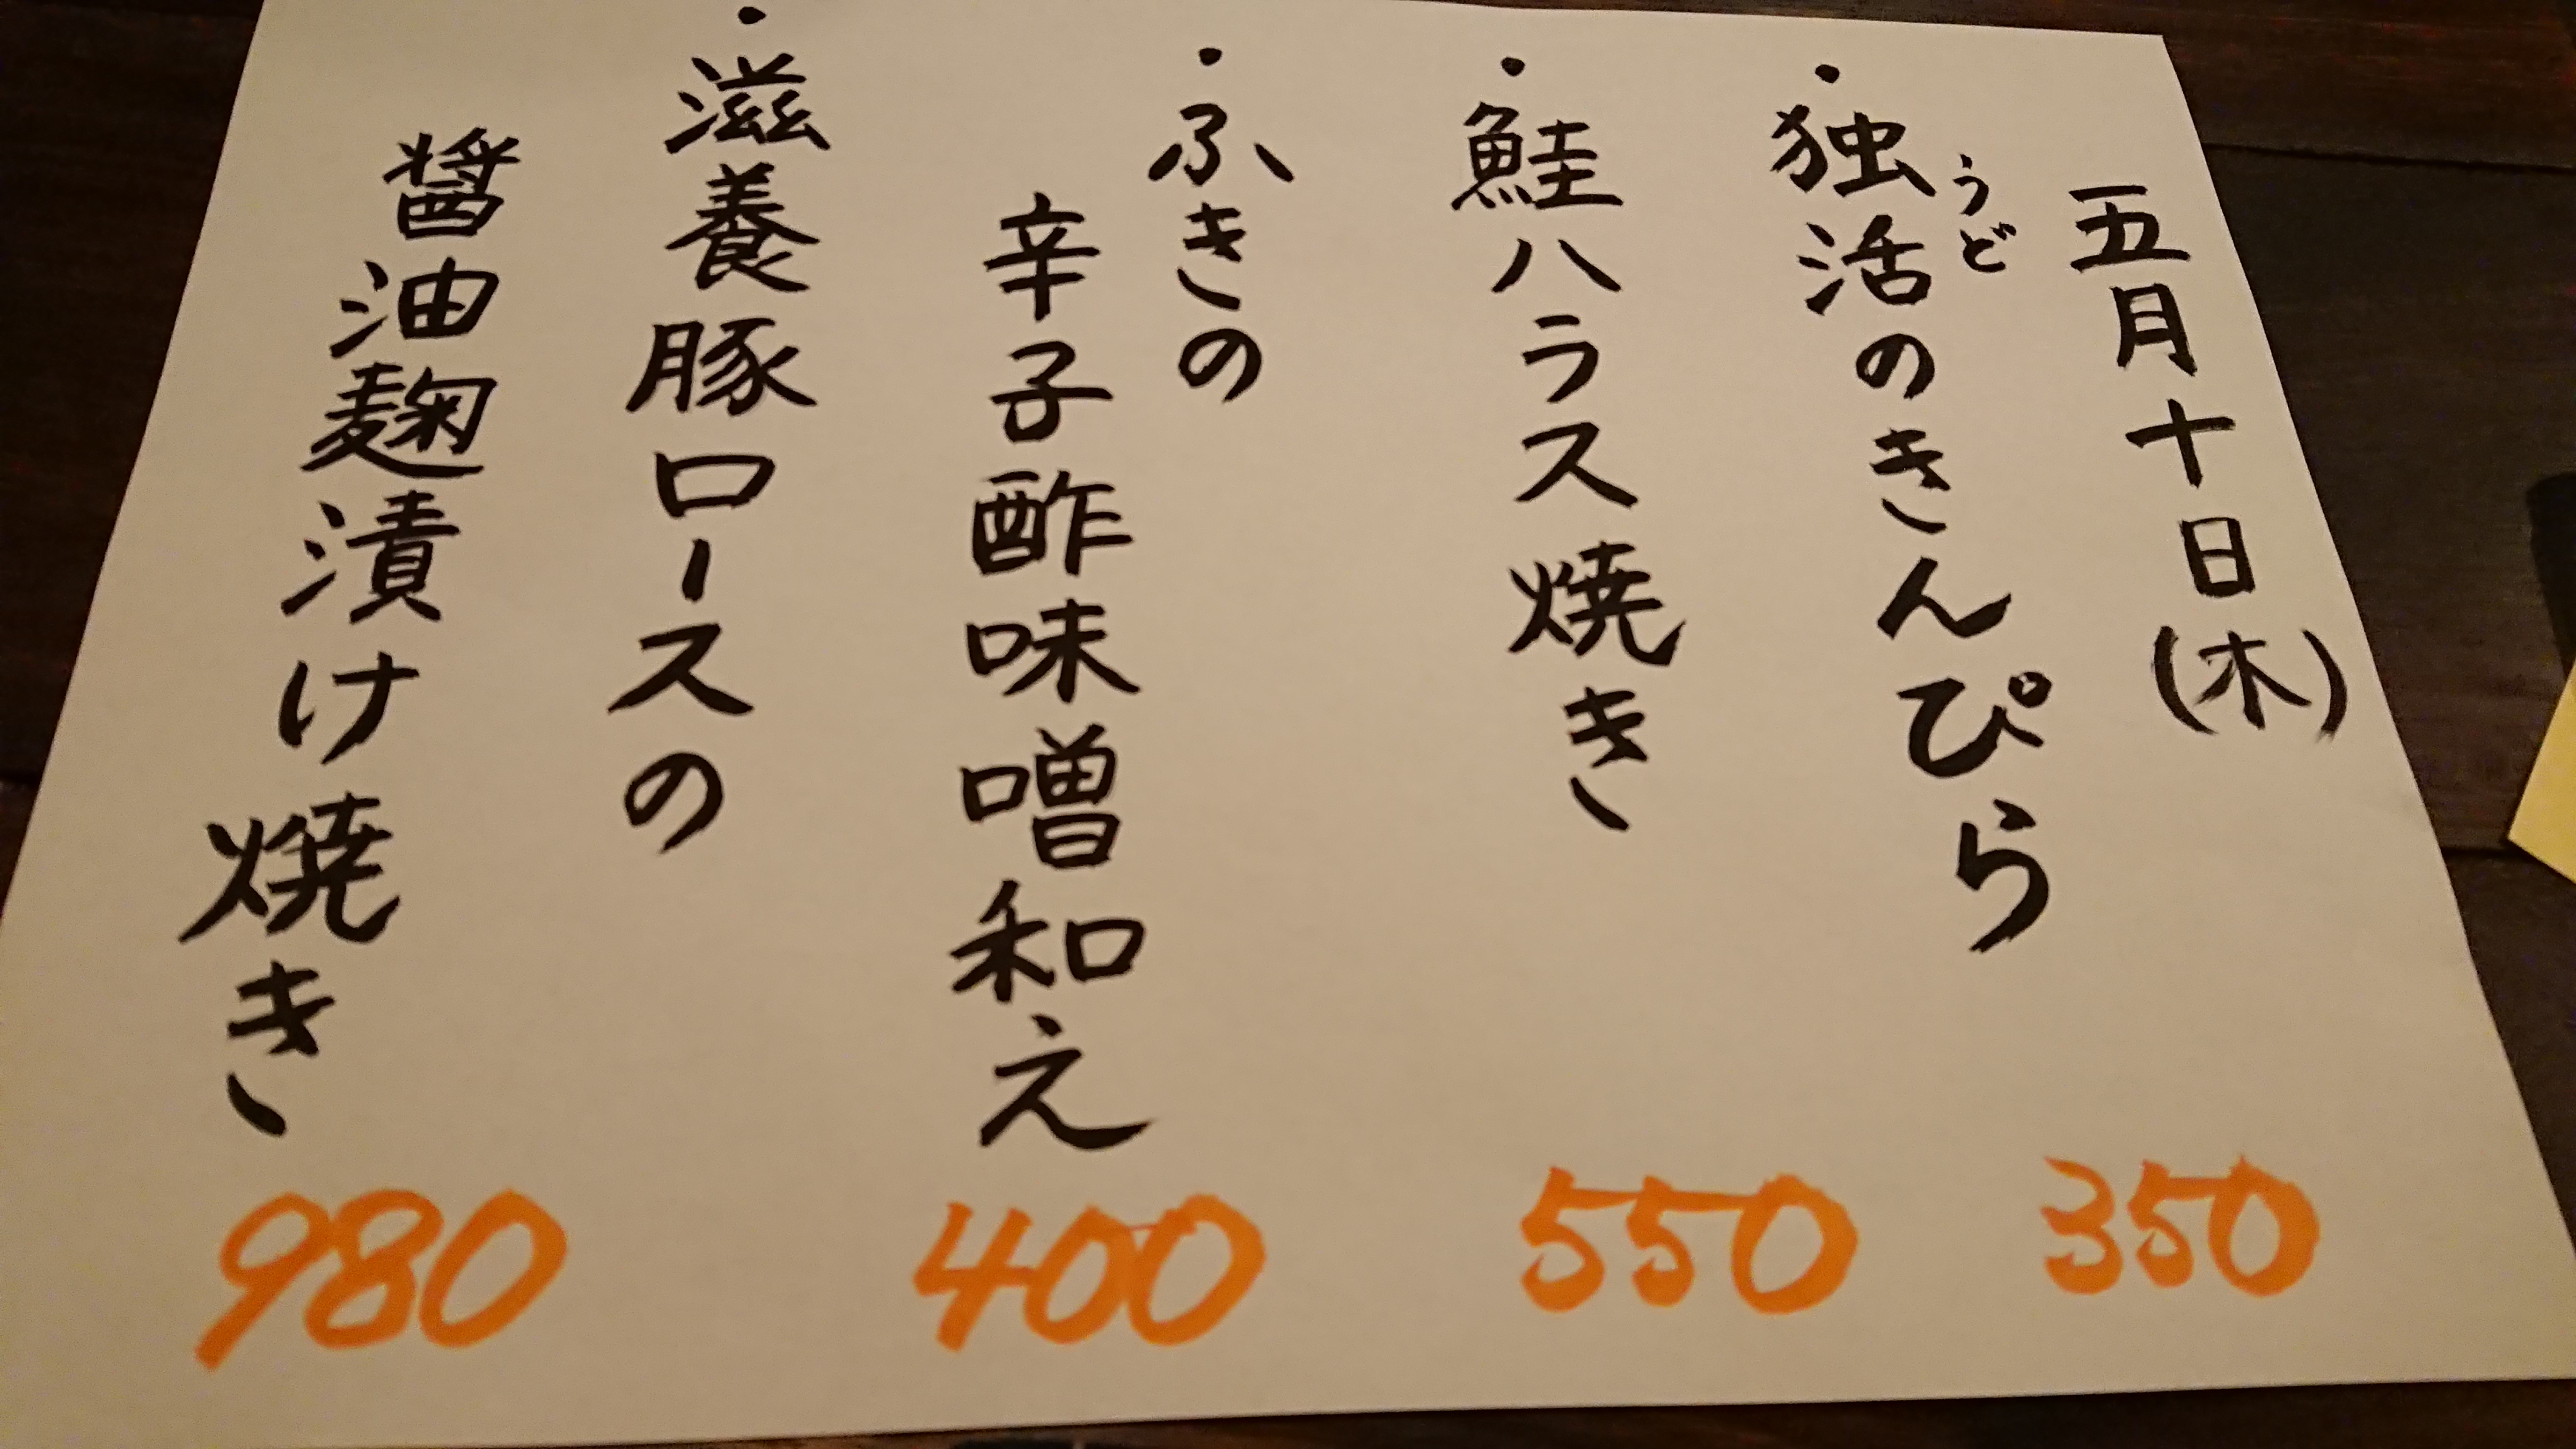 五月十日(木)
・独活のきんぴら
うど
350
・鮭ハラス焼き
550
・ふきの
辛子酢味噌和え
400
・滋養豚ロースの
醤油麹漬け焼き
980